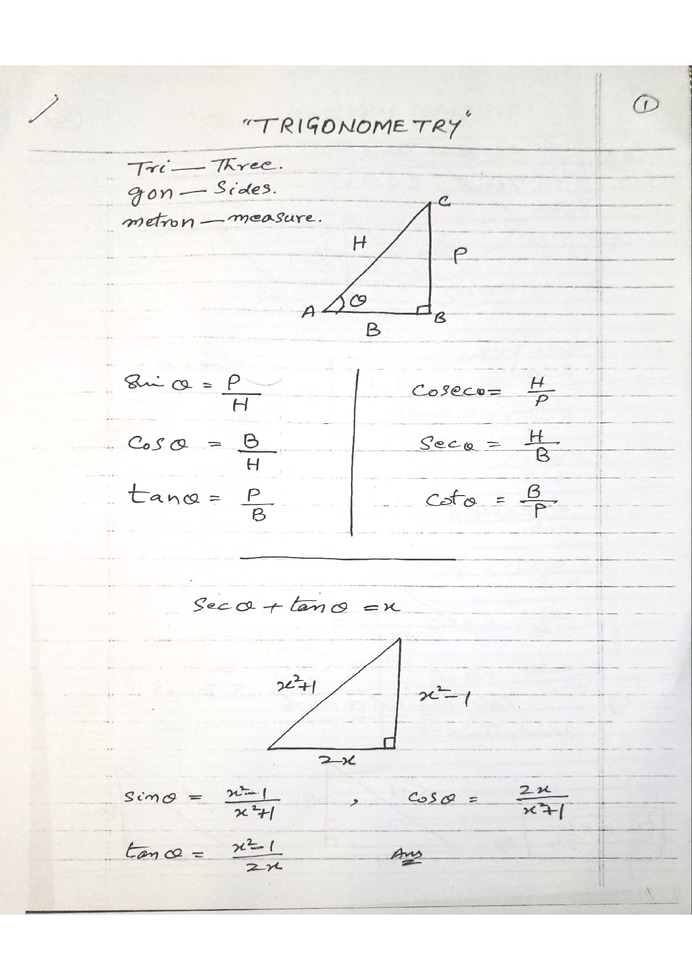 ①
"TRIGONOMETRY"
Tri — Three.
gon — Sides.
metron — measure.
C
H
P
A
θ
B
B
Sin θ = P/H
Cosecθ = H/P
Cos θ = B/H
Secθ = H/B
tanθ = P/B
Cotθ = B/P
Secθ + tanθ = x
x²+1
x²-1
2x
sinθ = x²-1/x²+1 , cosθ = 2x/x²+1
tanθ = x²-1/2x Ans